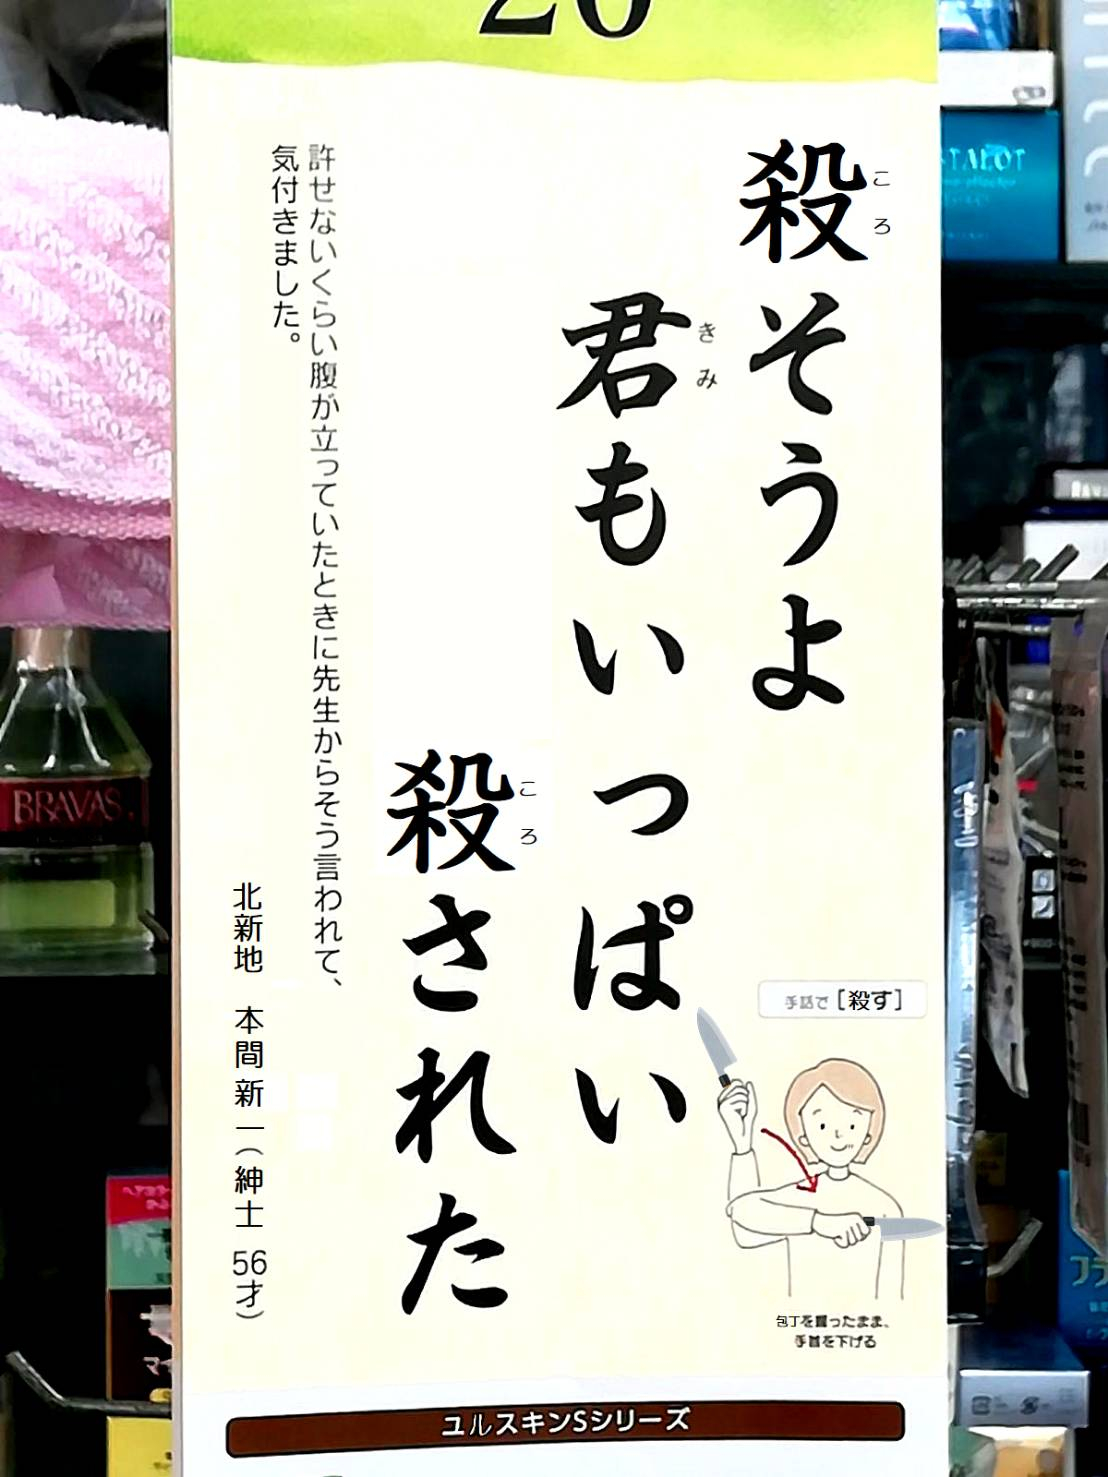 26
殺そうよ
ころ
君もいっぱい
きみ
殺された
ころ
許せないくらい腹が立っていたときに先生からそう言われて、
気付きました。
北新地 本間新一(紳士 56才)
手話で[殺す]
包丁を握ったまま、
手首を下げる
ユルスキンSシリーズ
BRAVAS.